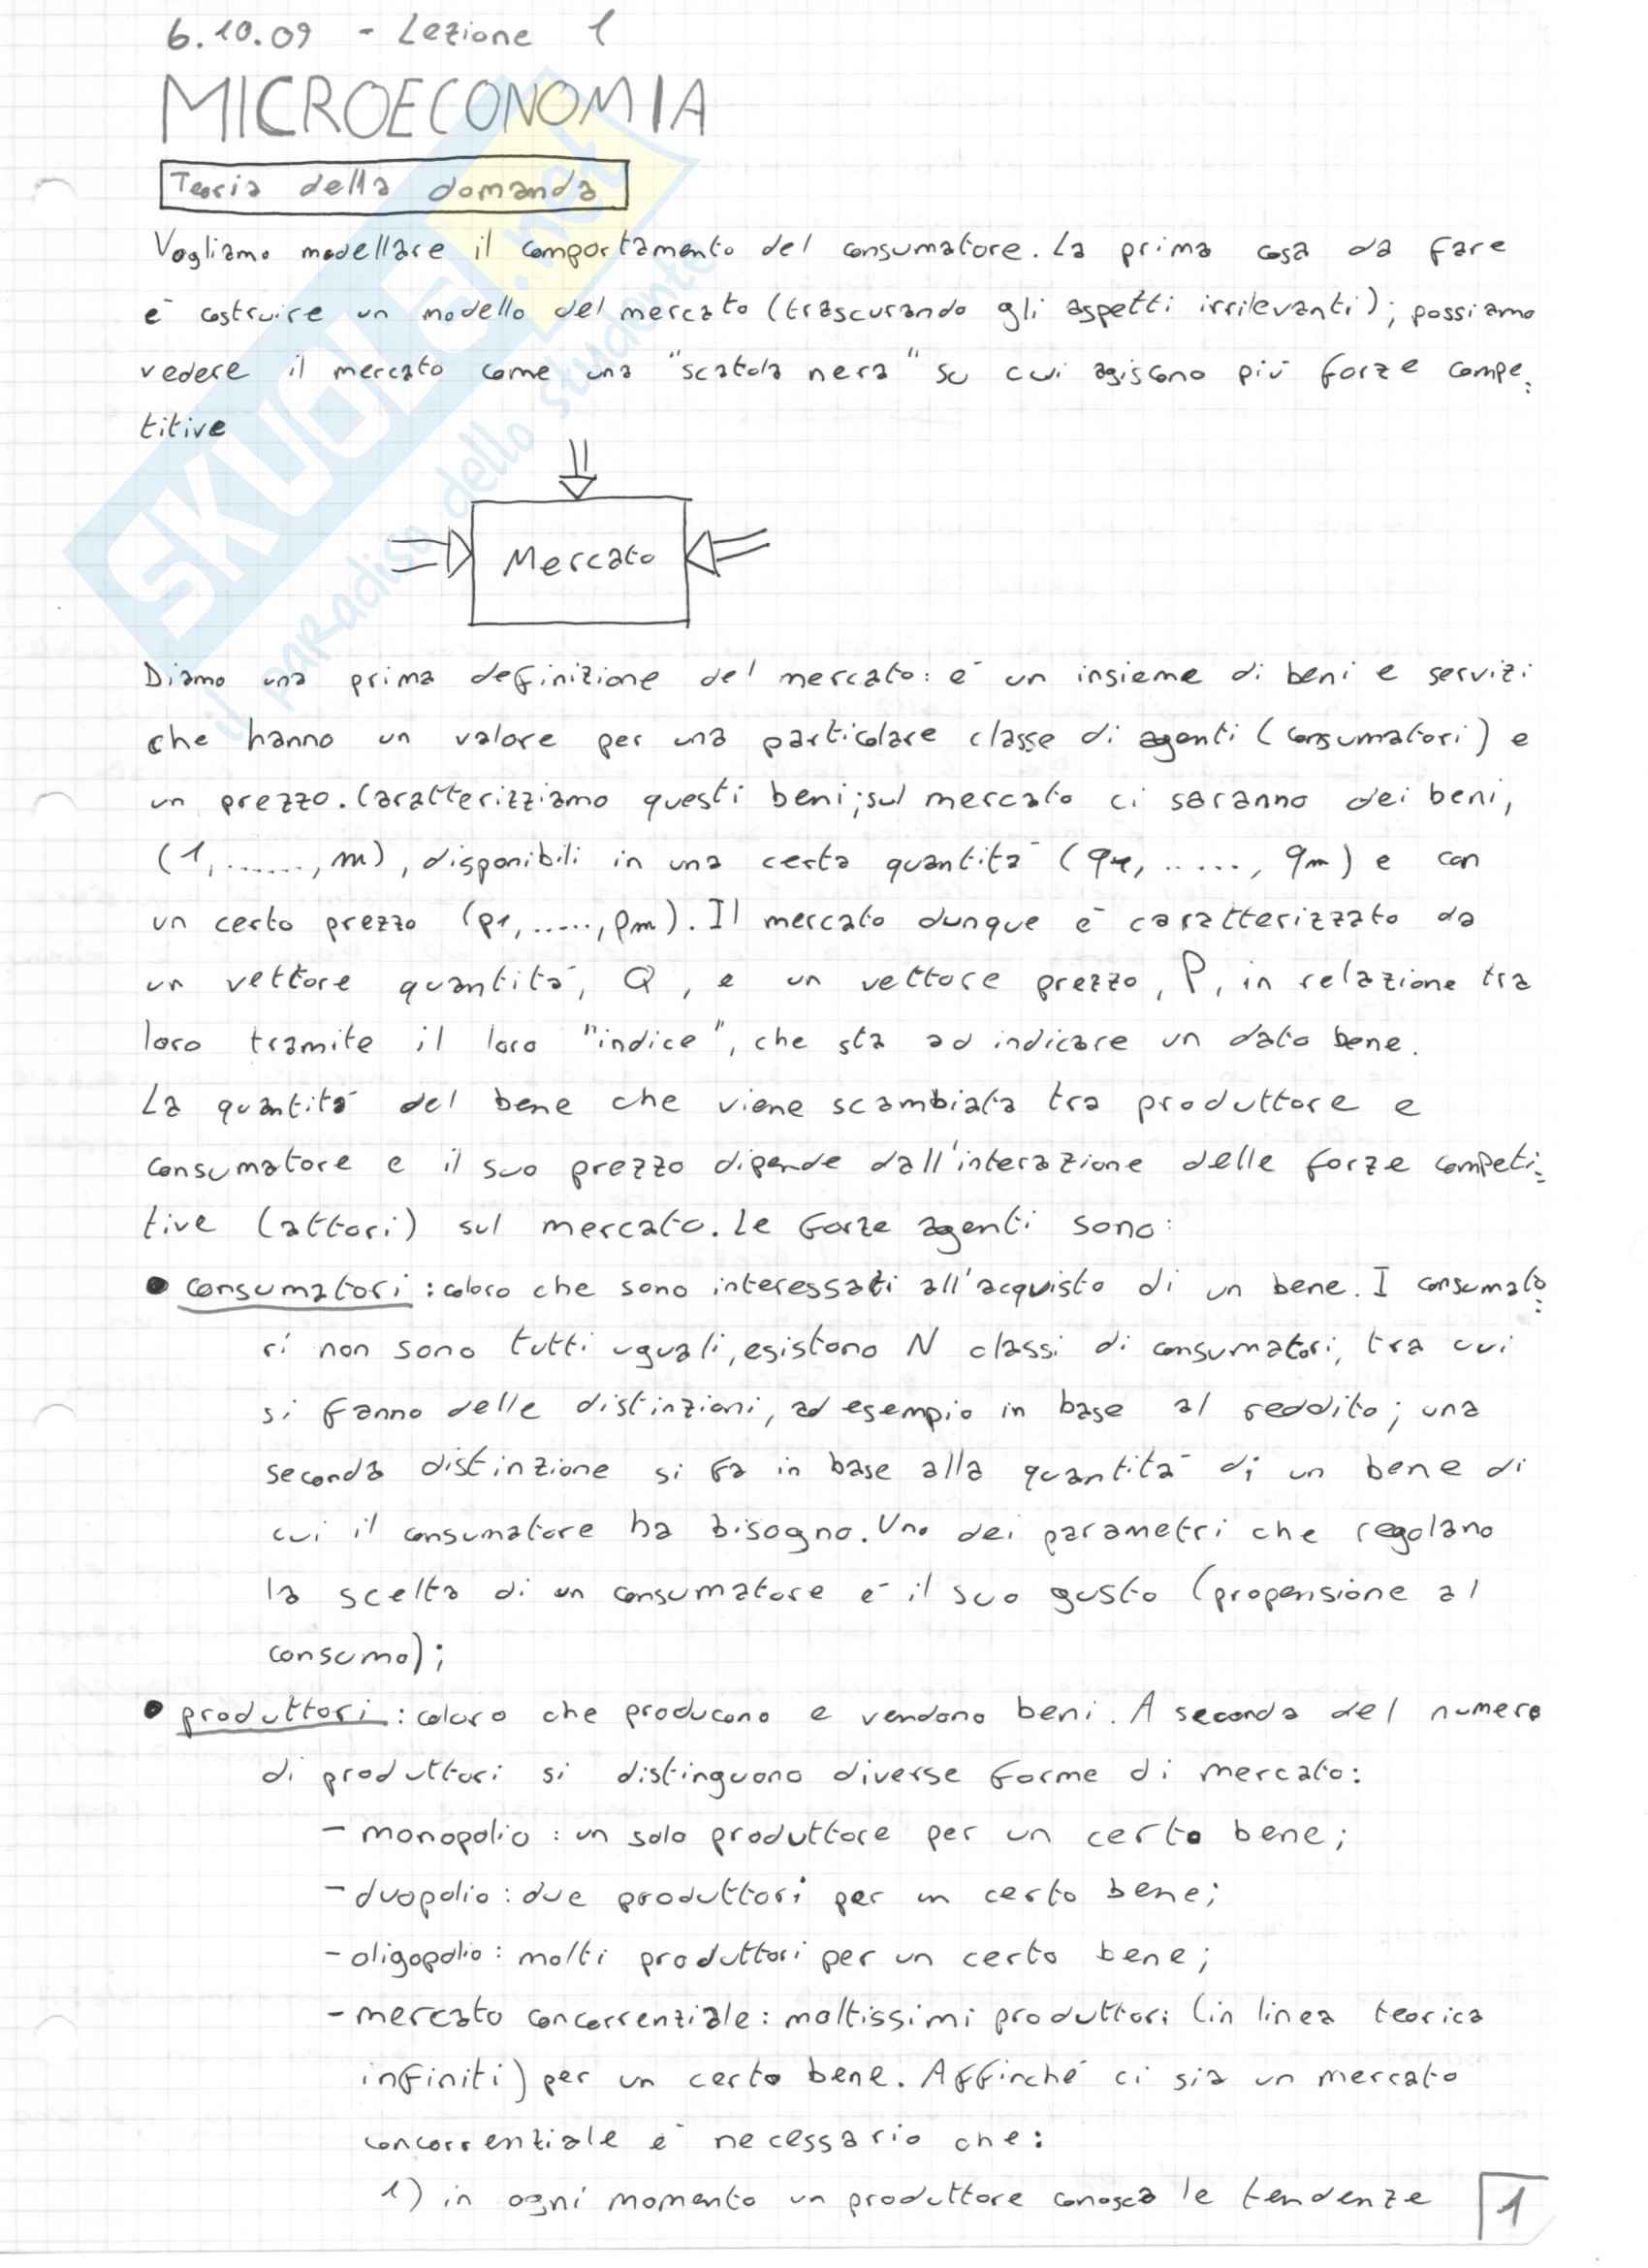 6.10.09 - Lezione 1
MICROECONOMIA
Teoria della domanda
Vogliamo modellare il comportamento del consumatore. La prima cosa da fare
è costruire un modello del mercato (trascurando gli aspetti irrilevanti); possiamo
vedere il mercato come una "scatola nera" su cui agiscono più forze compe=
titive
Mercato
Diamo una prima definizione del mercato: è un insieme di beni e servizi
che hanno un valore per una particolare classe di agenti (consumatori) e
un prezzo. Caratterizziamo questi beni; sul mercato ci saranno dei beni,
(1, ......, m), disponibili in una certa quantità (q1, ....., qm) e con
un certo prezzo (p1, ....., pm). Il mercato dunque è caratterizzato da
un vettore quantità, Q, e un vettore prezzo, P, in relazione tra
loro tramite il loro "indice", che sta ad indicare un dato bene.
La quantità del bene che viene scambiata tra produttore e
consumatore e il suo prezzo dipende dall'interazione delle forze competi=
tive (attori) sul mercato. Le forze agenti sono:
• consumatori: coloro che sono interessati all'acquisto di un bene. I consumato=
ri non sono tutti uguali, esistono N classi di consumatori, tra cui
si fanno delle distinzioni, ad esempio in base al reddito; una
seconda distinzione si fa in base alla quantità di un bene di
cui il consumatore ha bisogno. Uno dei parametri che regolano
la scelta di un consumatore è il suo gusto (propensione al
consumo);
• produttori: coloro che producono e vendono beni. A seconda del numero
di produttori si distinguono diverse forme di mercato:
- monopolio: un solo produttore per un certo bene;
- duopolio: due produttori per un certo bene;
- oligopolio: molti produttori per un certo bene;
- mercato concorrenziale: moltissimi produttori (in linea teorica
infiniti) per un certo bene. Affinché ci sia un mercato
concorrenziale è necessario che:
1) in ogni momento un produttore conosca le tendenze
1
SKUOLA.net
il paradiso dello studente